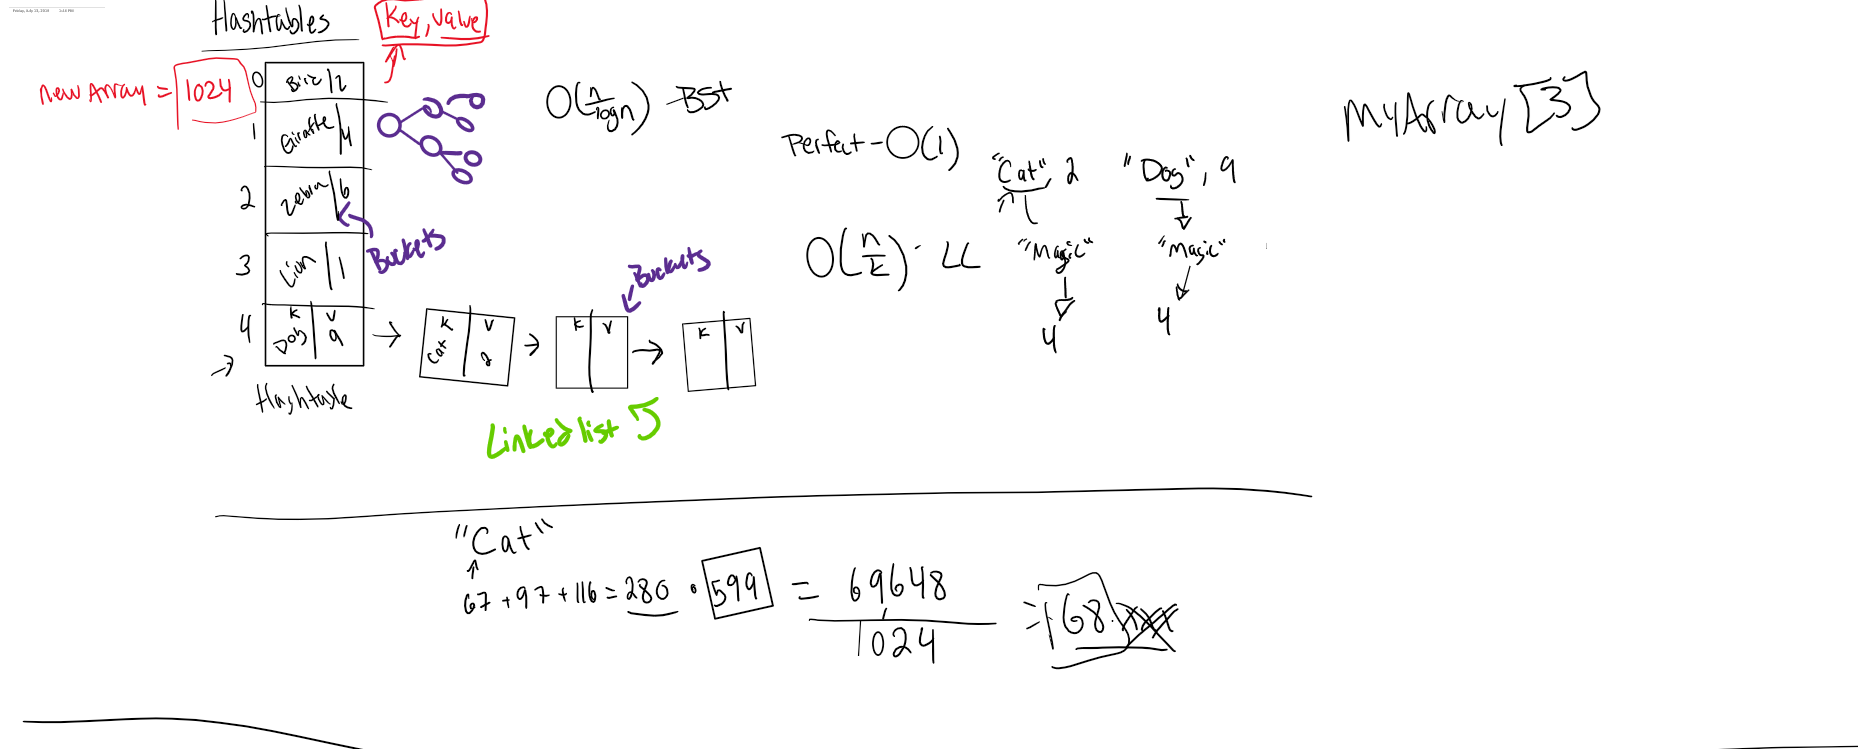 Hashtables
Key, value
new Array = 1024
0 Bird/2
1 Giraffe/4
2 Zebra/6
3 Lion/1
4 K V
Dog 9
Hashtable
Buckets
K V
Cat 2
K V
K V
Buckets
Linked list
O(n/logn) - BST
Perfect - O(1)
O(n/k) - LL
"Cat", 2
"Magic"
4
"Dog", 9
"Magic"
4
MyArray[3]
"Cat"
67 + 97 + 116 = 280 · 599 = 69648
1024
= 68.